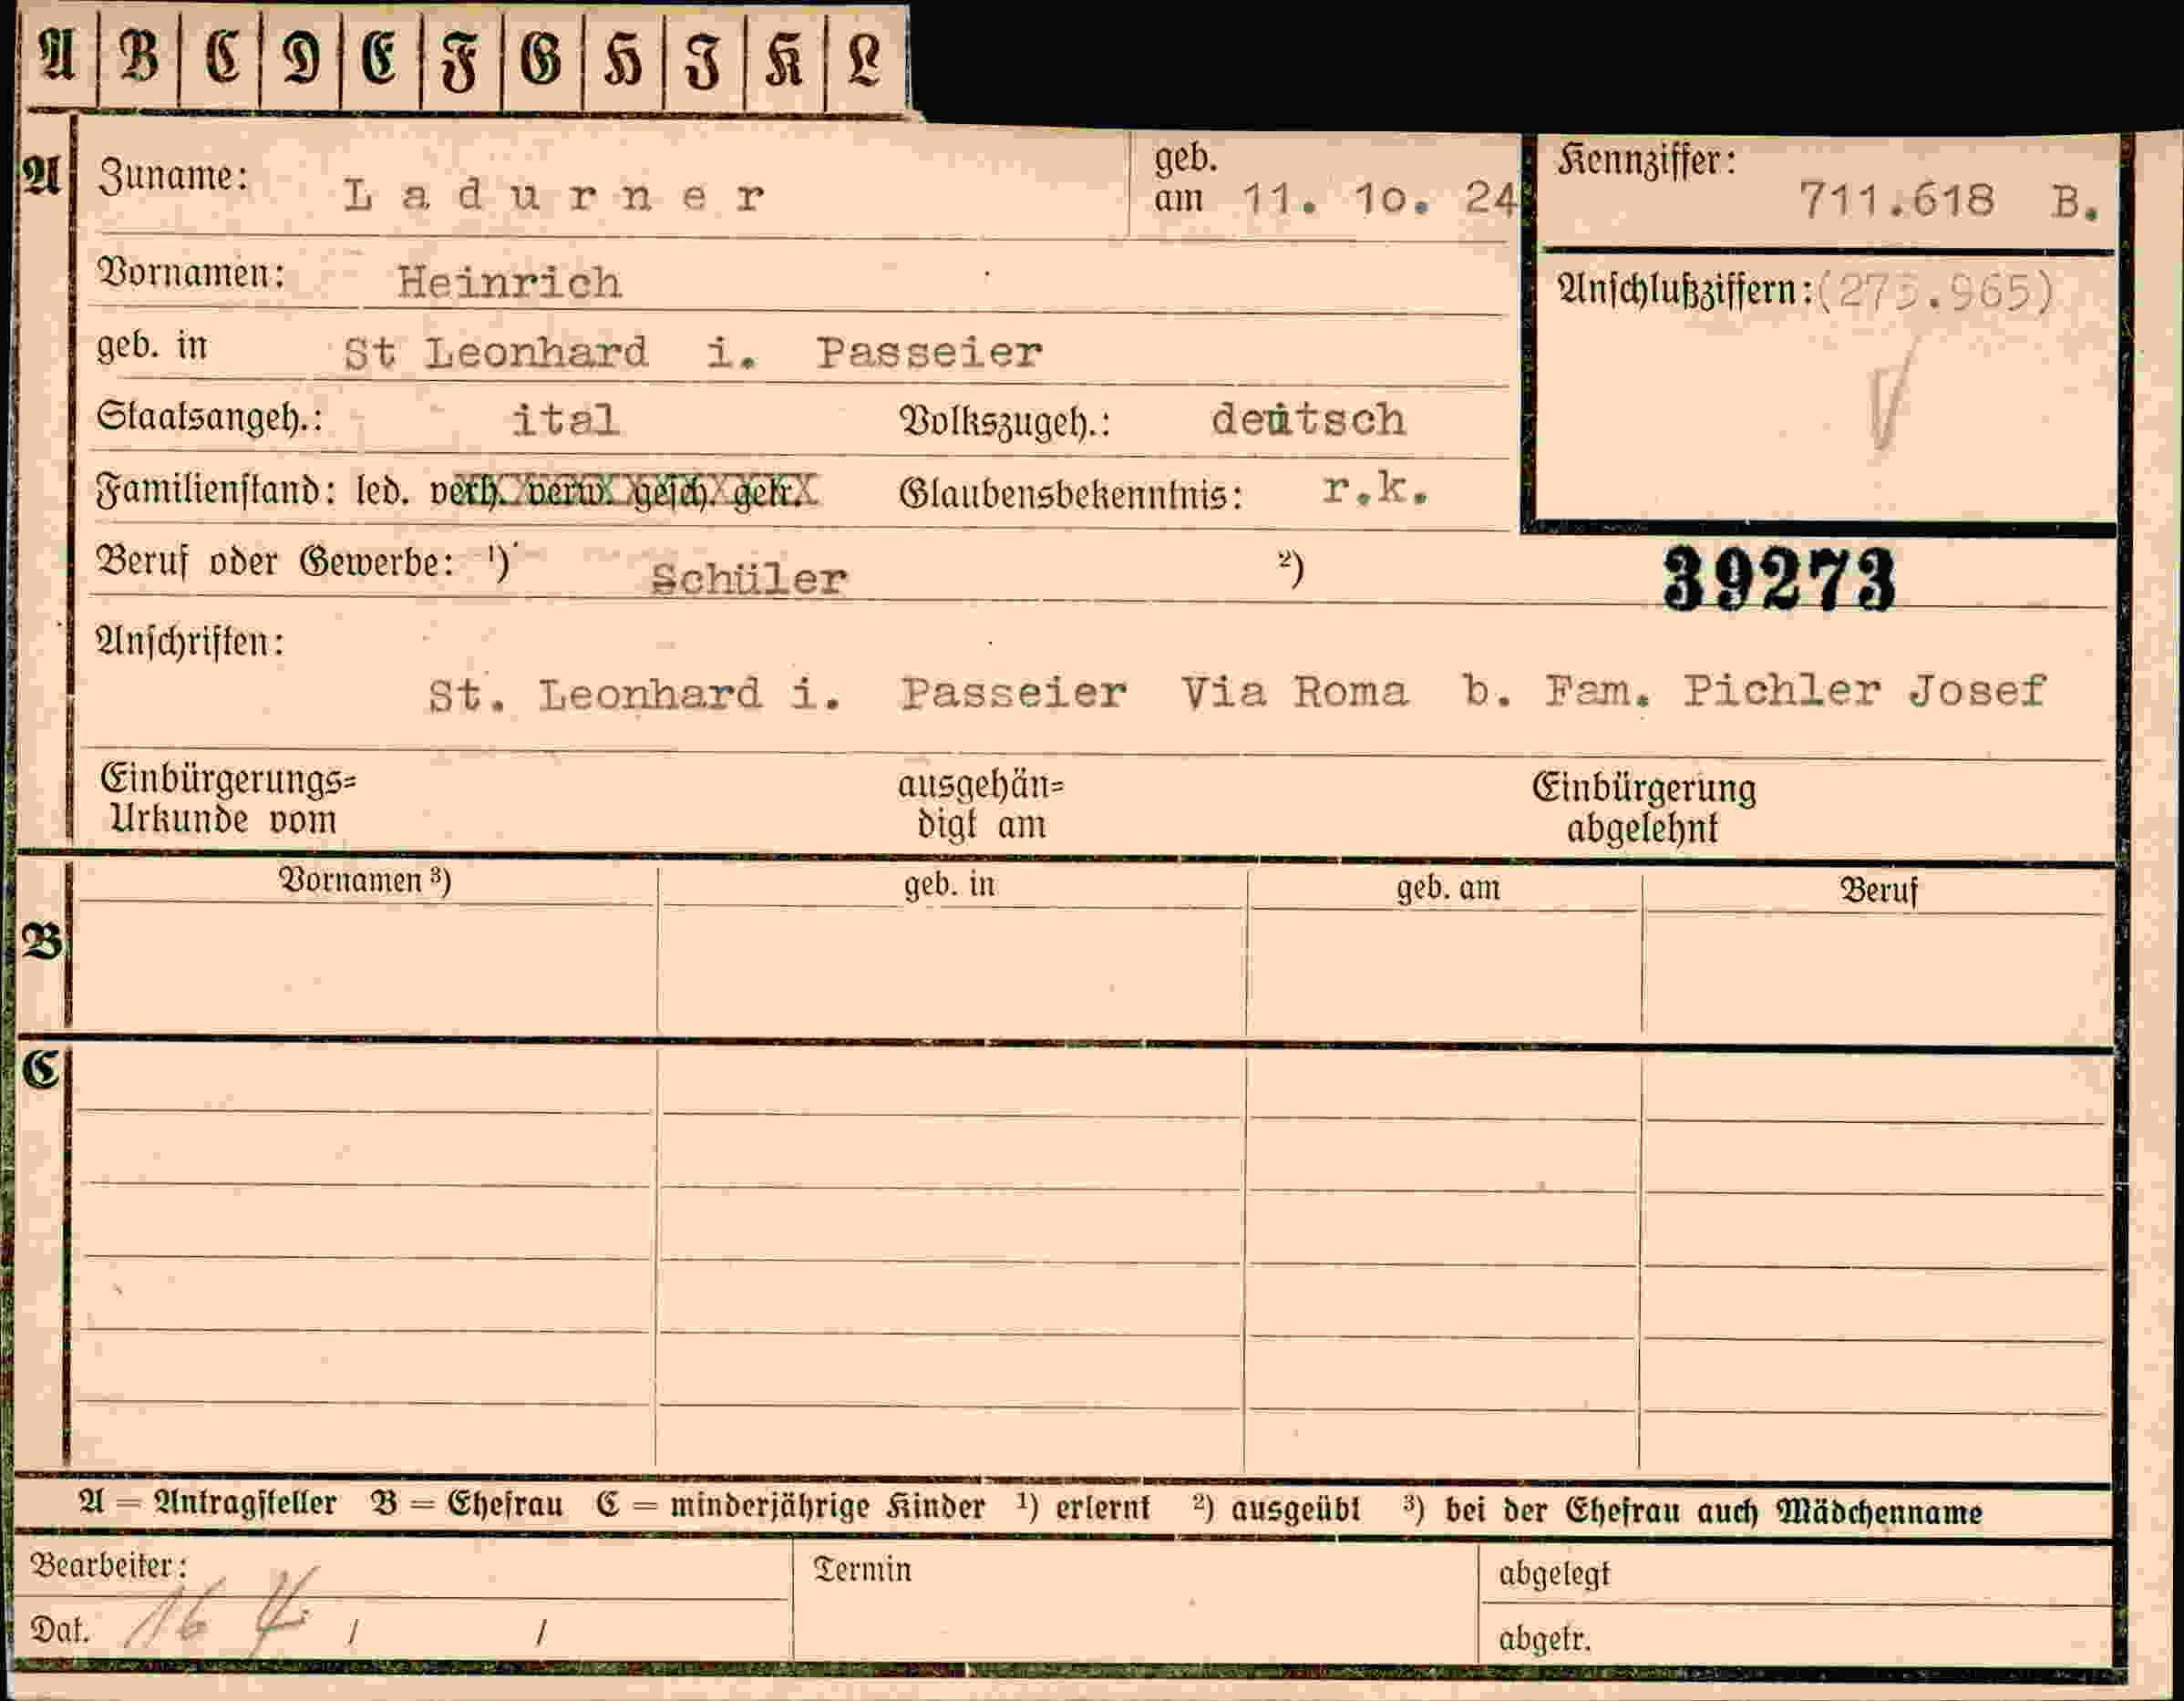 A B C D E F G H I K L
A Zuname: Ladurner geb. am 11. 10. 24 Kennziffer: 711.618 B.
Vornamen: Heinrich Anschlußziffern: (275.965)
geb. in St Leonhard i. Passeier
Staatsangeh.: ital Volkszugeh.: deutsch
Familienstand: led. verh. verw. gesch. getr. Glaubensbekenntnis: r.k.
Beruf oder Gewerbe: 1) Schüler 2) 39273
Anschriften:
St. Leonhard i. Passeier Via Roma b. Fam. Pichler Josef
Einbürgerungs= ausgehän= Einbürgerung
Urkunde vom digt am abgelehnt
Vornamen 3) geb. in geb. am Beruf
B
C
A = Antragsteller B = Ehefrau C = minderjährige Kinder 1) erlernt 2) ausgeübt 3) bei der Ehefrau auch Mädchenname
Bearbeiter: Termin abgelegt
Dat. 16 / / abgetr.